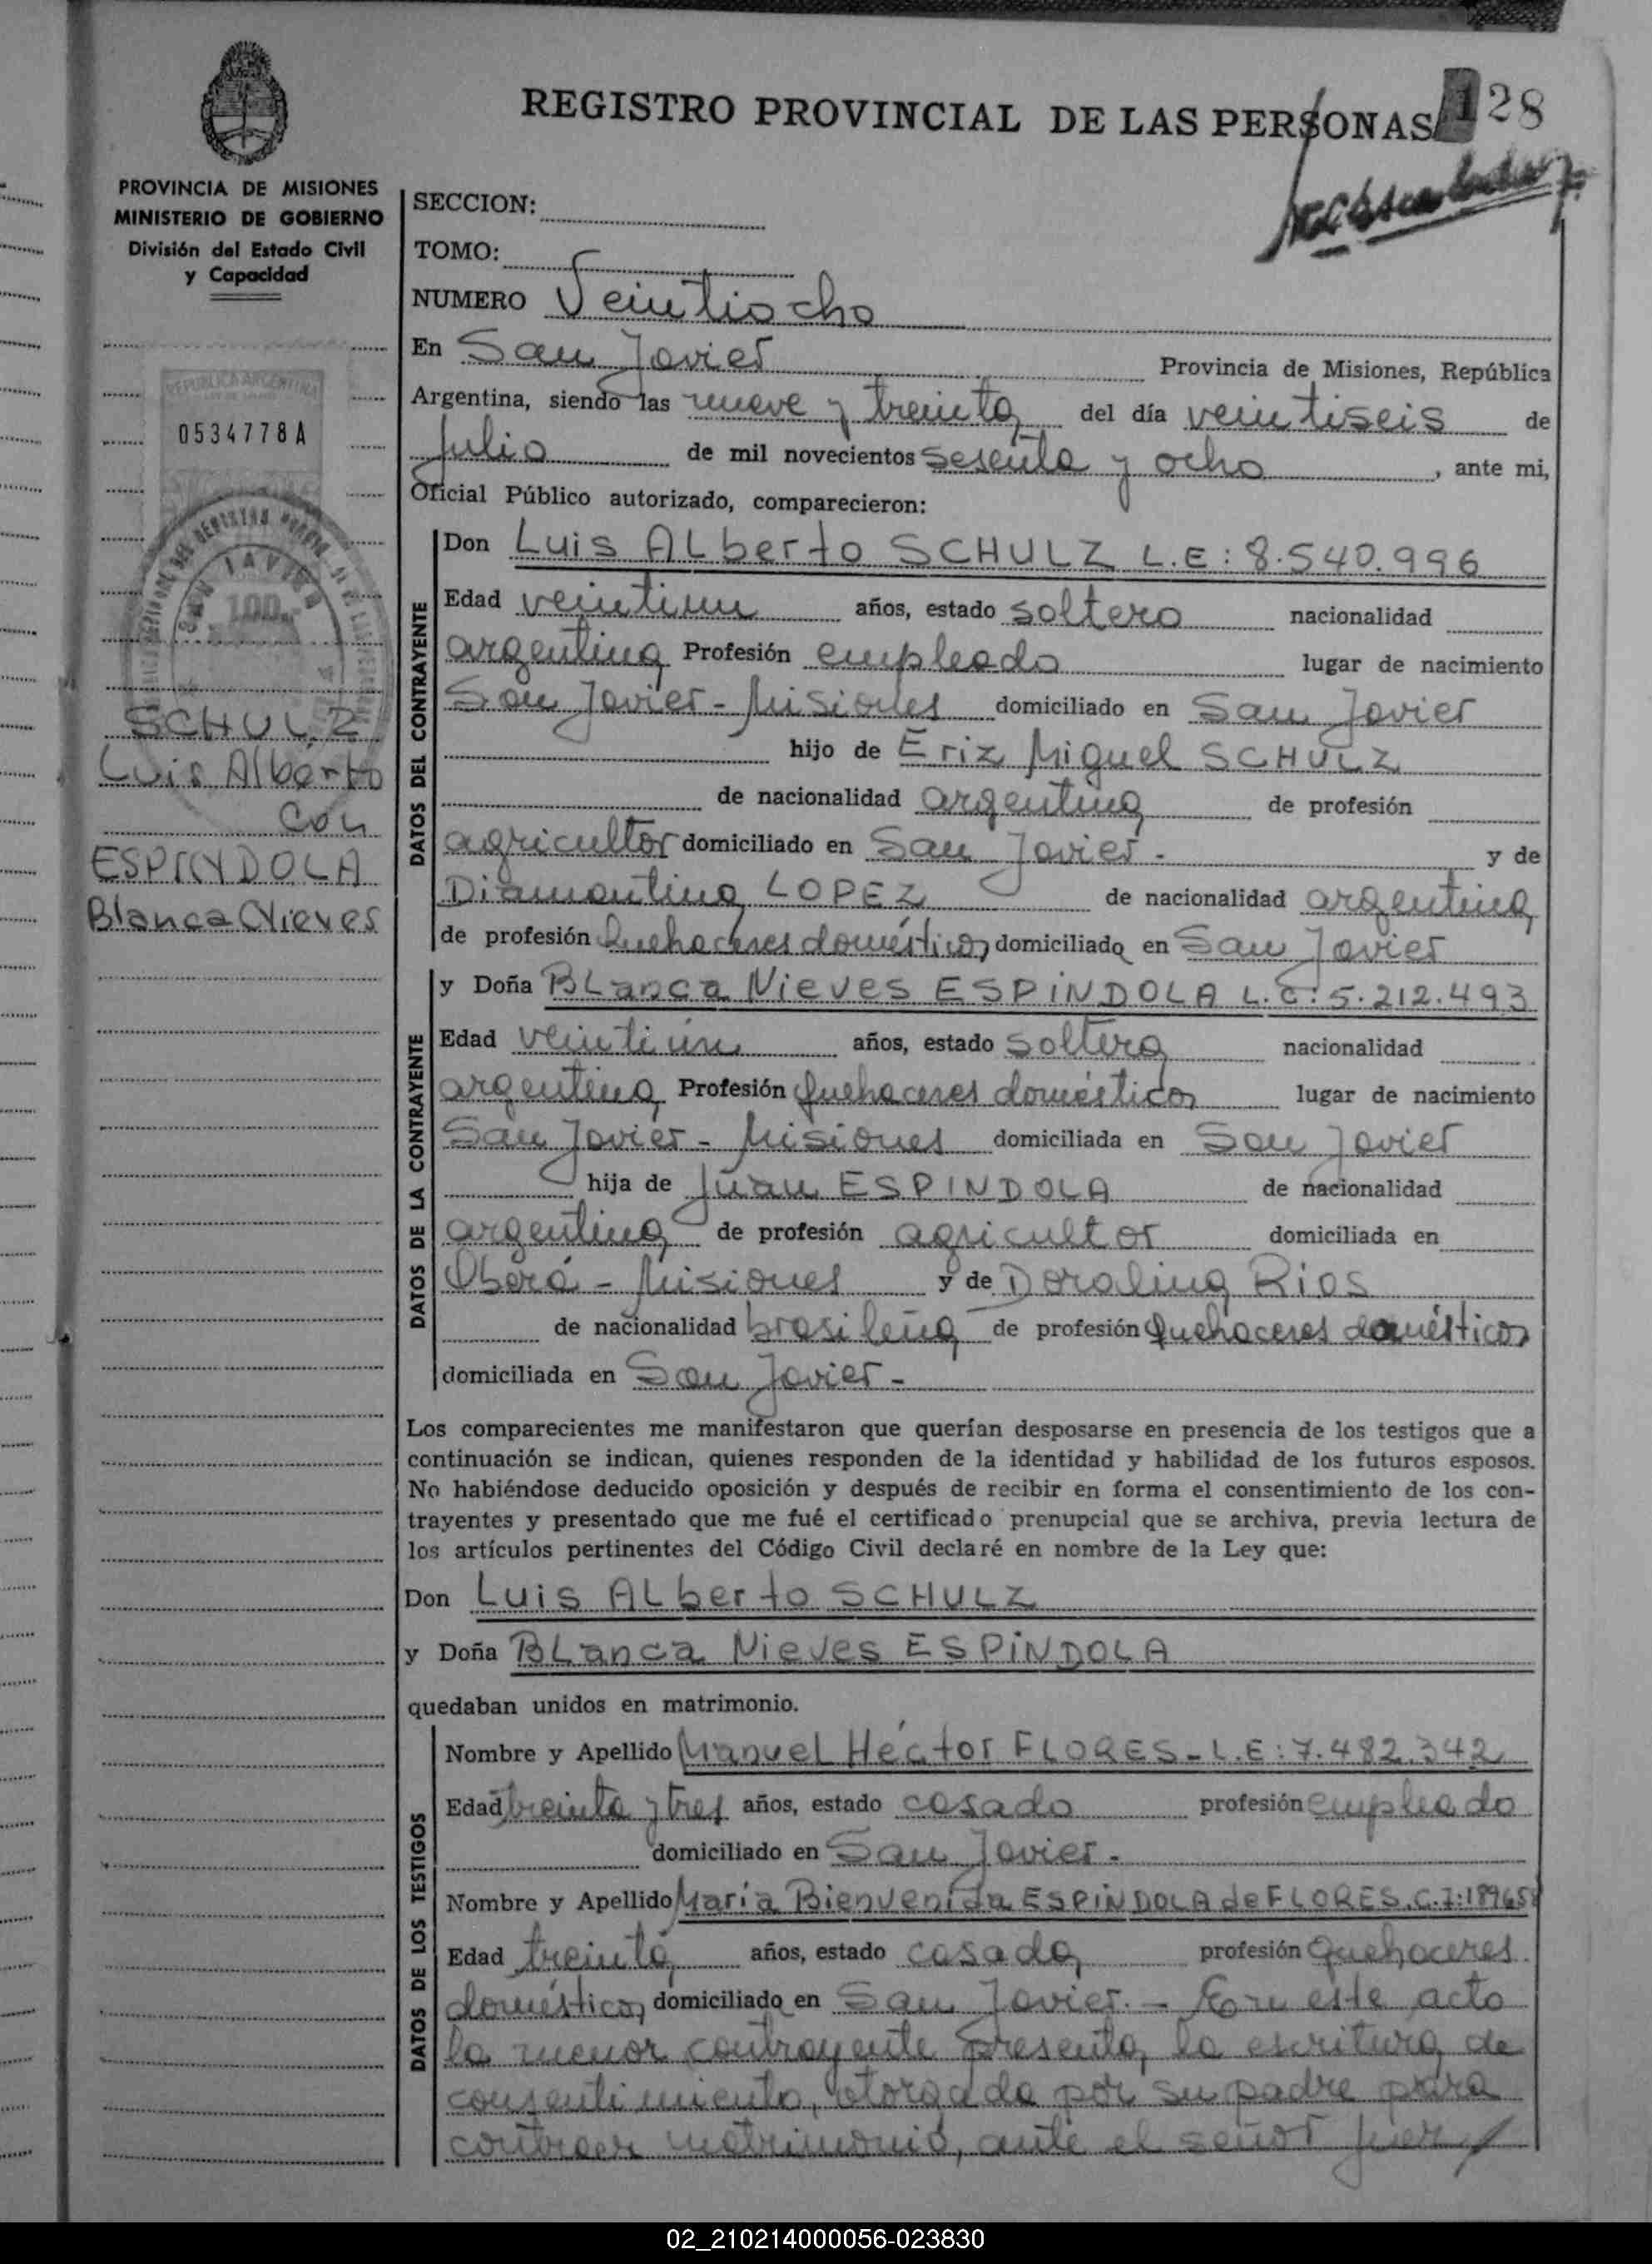 REGISTRO PROVINCIAL DE LAS PERSONAS
128
PROVINCIA DE MISIONES
MINISTERIO DE GOBIERNO
División del Estado Civil
y Capacidad
REPUBLICA ARGENTINA
0534778A
SAN JAVIER
100
SCHULZ
Luis Alberto
con
ESPINDOLA
Blanca Nieves
SECCION:
TOMO:
NUMERO Veintiocho
En San Javier Provincia de Misiones, República
Argentina, siendo las nueve y treinta del día veintiseis de
Julio de mil novecientos sesenta y ocho, ante mi,
Oficial Público autorizado, comparecieron:
DATOS DEL CONTRAYENTE
Don Luis ALberto SCHULZ L.E: 8.540.996
Edad veintiun años, estado soltero nacionalidad
argentina Profesión empleado lugar de nacimiento
San Javier - Misiones domiciliado en San Javier
hijo de Eriz Miguel SCHULZ
de nacionalidad argentina de profesión
agricultor domiciliado en San Javier - y de
Diamantina LOPEZ de nacionalidad argentina
de profesión Quehaceres domésticos domiciliado en San Javier
DATOS DE LA CONTRAYENTE
y Doña BLanca Nieves ESPINDOLA L.C: 5.212.493
Edad veintiún años, estado soltera nacionalidad
argentina Profesión Quehaceres domésticos lugar de nacimiento
San Javier - Misiones domiciliada en San Javier
hija de Juan ESPINDOLA de nacionalidad
argentina de profesión agricultor domiciliada en
Oberá - Misiones y de Doralina Rios
de nacionalidad brasileña de profesión Quehaceres domésticos
domiciliada en San Javier -
Los comparecientes me manifestaron que querían desposarse en presencia de los testigos que a
continuación se indican, quienes responden de la identidad y habilidad de los futuros esposos.
No habiéndose deducido oposición y después de recibir en forma el consentimiento de los con-
trayentes y presentado que me fué el certificado prenupcial que se archiva, previa lectura de
los artículos pertinentes del Código Civil declaré en nombre de la Ley que:
Don Luis ALberto SCHULZ
y Doña BLanca Nieves ESPINDOLA
quedaban unidos en matrimonio.
DATOS DE LOS TESTIGOS
Nombre y Apellido Manuel Héctor FLORES - L.E: 7.482.342
Edad treinta y tres años, estado casado profesión empleado
domiciliado en San Javier -
Nombre y Apellido María Bienvenida ESPINDOLA de FLORES. C.I:
Edad treinta años, estado casada profesión Quehaceres
domésticos domiciliado en San Javier. - En este acto
la menor contrayente presenta la escritura de
consentimiento, otorgada por su padre para
contraer matrimonio, ante el señor Juez
02_210214000056-023830